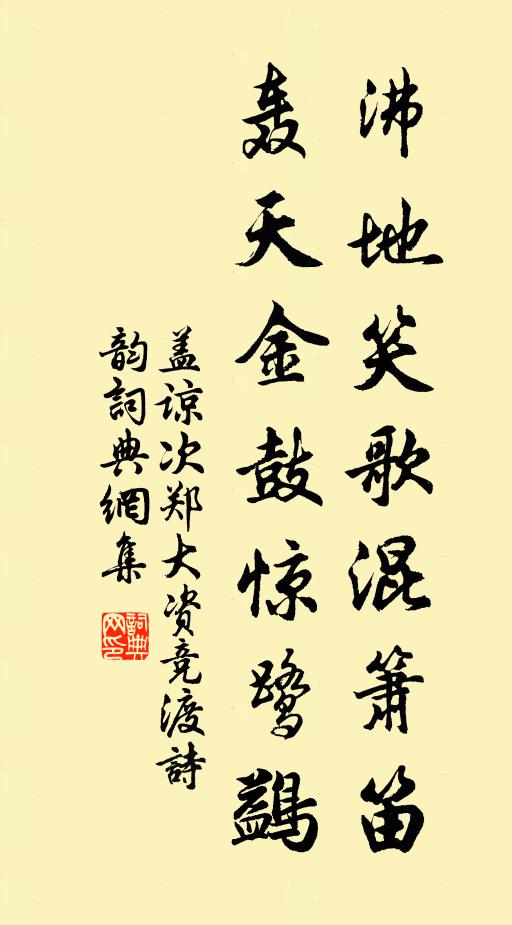 沸地笑歌混箫笛
轰天金鼓惊鹭鷁
盖谅次郑大资竞渡詩
韵詞典網集
詞典
网印